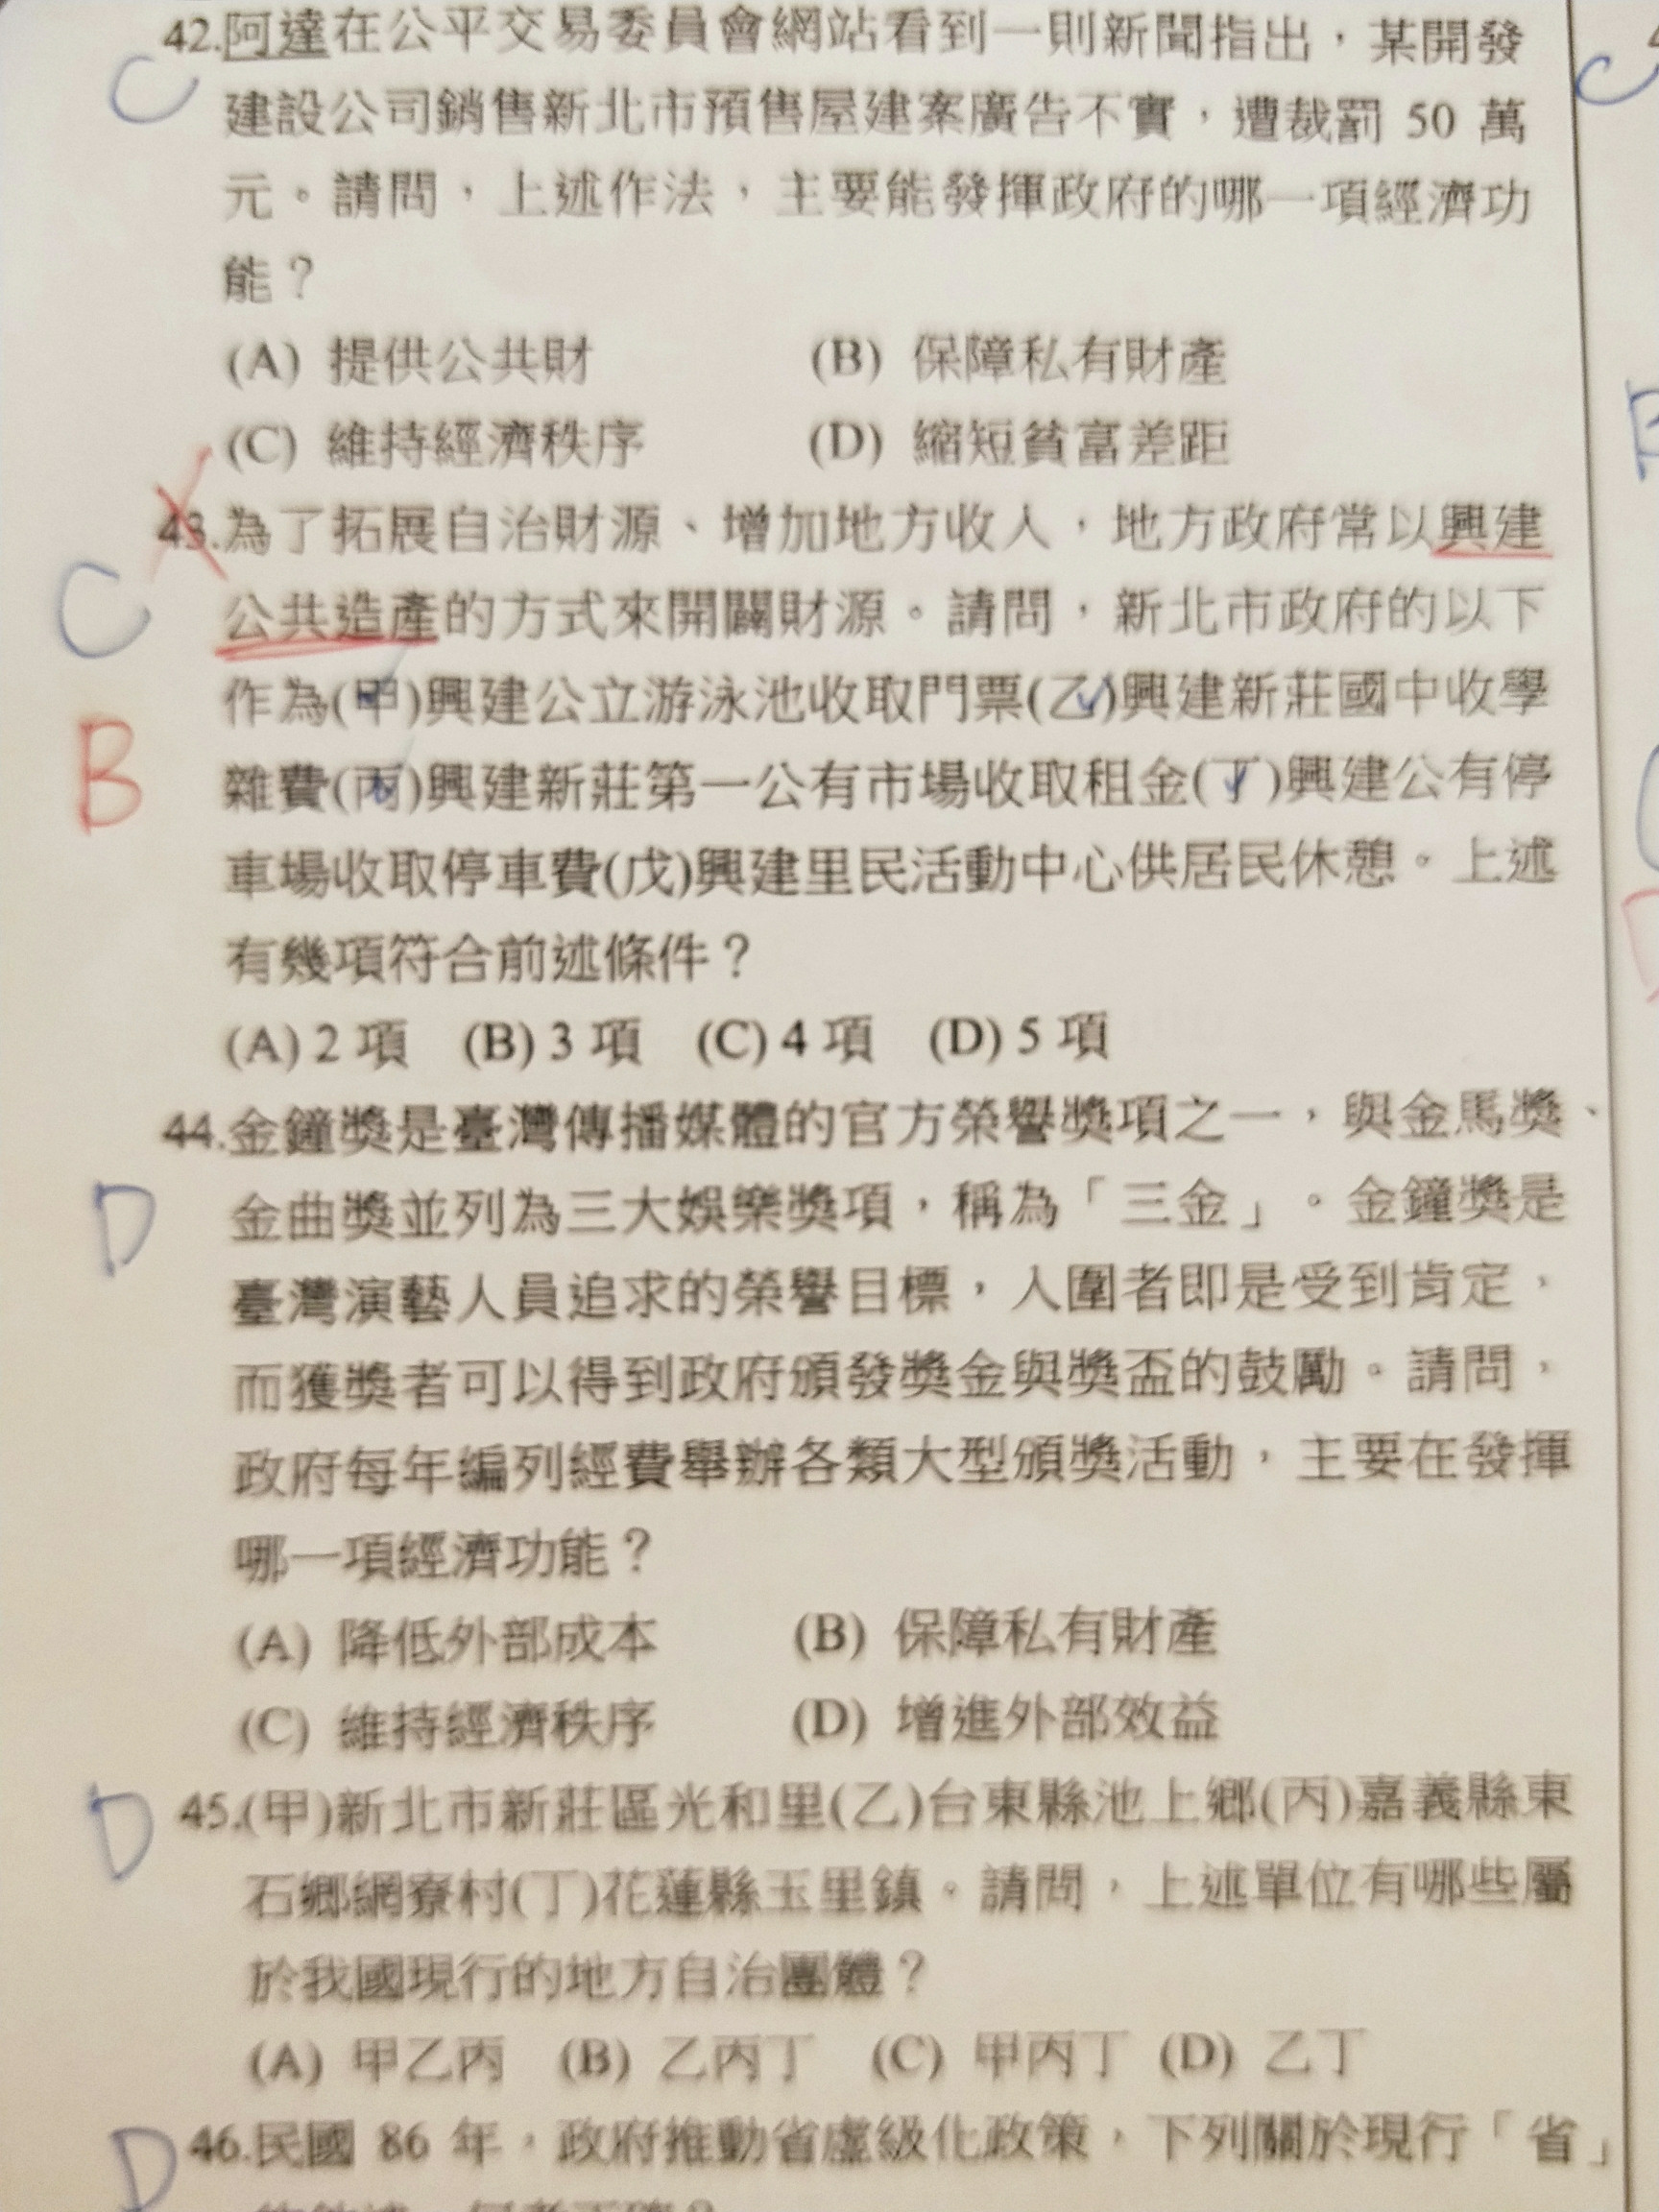 42.阿達在公平交易委員會網站看到一則新聞指出，某開發
C
建設公司銷售新北市預售屋建案廣告不實，遭裁罰 50 萬
元。請問，上述作法，主要能發揮政府的哪一項經濟功
能？
(A) 提供公共財 (B) 保障私有財產
(C) 維持經濟秩序 (D) 縮短貧富差距
43.為了拓展自治財源、增加地方收入，地方政府常以興建
C
公共造產的方式來開闢財源。請問，新北市政府的以下
作為(甲)興建公立游泳池收取門票(乙)興建新莊國中收學
B
雜費(丙)興建新莊第一公有市場收取租金(丁)興建公有停
車場收取停車費(戊)興建里民活動中心供居民休憩。上述
有幾項符合前述條件？
(A) 2 項 (B) 3 項 (C) 4 項 (D) 5 項
44.金鐘獎是臺灣傳播媒體的官方榮譽獎項之一，與金馬獎、
D
金曲獎並列為三大娛樂獎項，稱為「三金」。金鐘獎是
臺灣演藝人員追求的榮譽目標，入圍者即是受到肯定，
而獲獎者可以得到政府頒發獎金與獎盃的鼓勵。請問，
政府每年編列經費舉辦各類大型頒獎活動，主要在發揮
哪一項經濟功能？
(A) 降低外部成本 (B) 保障私有財產
(C) 維持經濟秩序 (D) 增進外部效益
D
45.(甲)新北市新莊區光和里(乙)台東縣池上鄉(丙)嘉義縣東
石鄉網寮村(丁)花蓮縣玉里鎮。請問，上述單位有哪些屬
於我國現行的地方自治團體？
(A) 甲乙丙 (B) 乙丙丁 (C) 甲丙丁 (D) 乙丁
D
46.民國 86 年，政府推動省虛級化政策，下列關於現行「省」